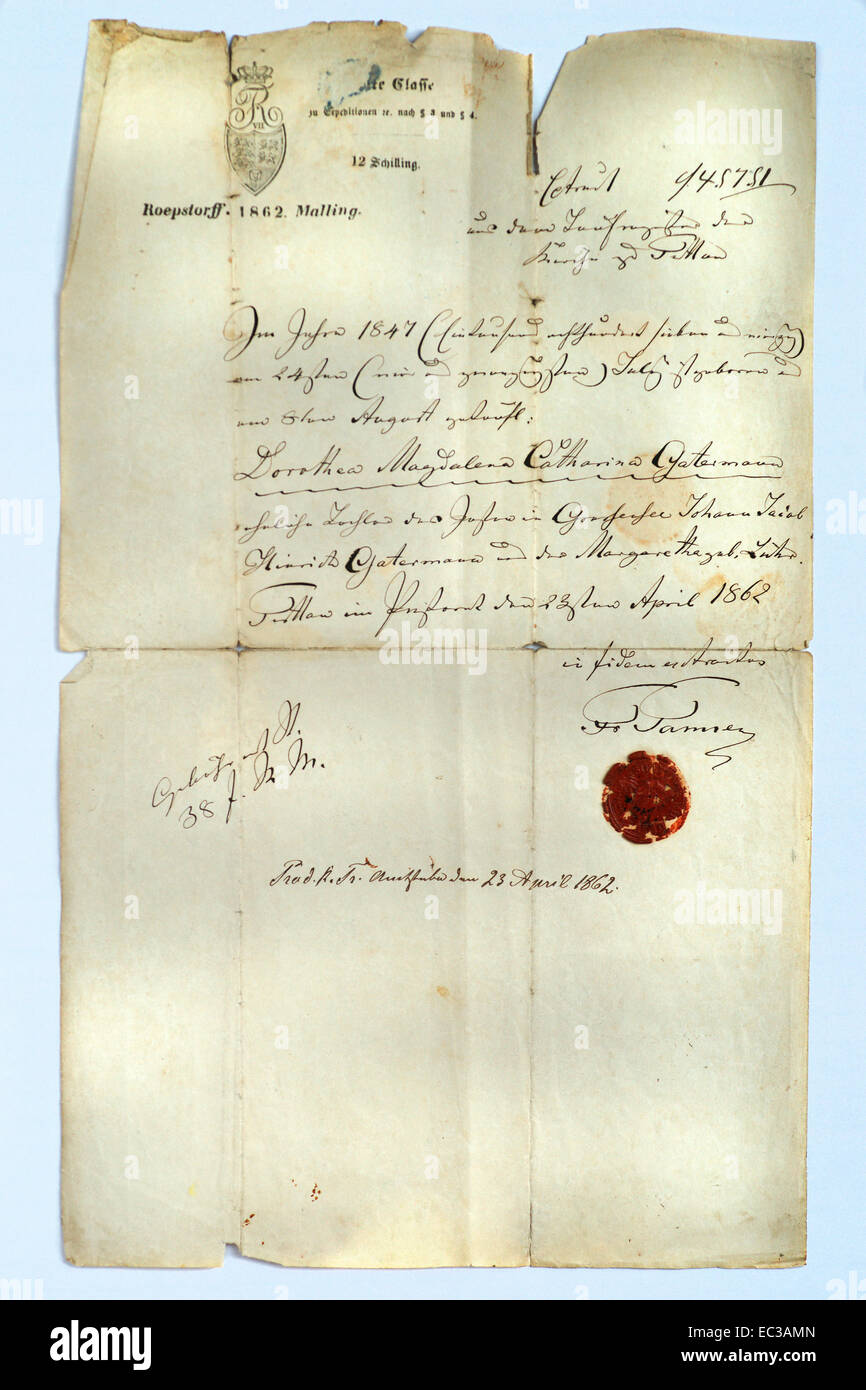 te Classe
zu Expeditionen ꝛc. nach § 3 und § 4.
12 Schilling.
R
VII
Roepstorff. 1862. Malling.
Extract
aus dem Taufregister der
Kirche zu Trittau
Im Jahre 1847 (Eintausend achthundert sieben und vierzig)
am 24sten (vier und zwanzigsten) July ist geboren und
am 8ten August getauft:
Dorothea Magdalena Catharina Gatermann
eheliche Tochter des Insten in Groossensee Johann Jacob
Hinrich Gatermann und der Margaretha geb. Lühr.
Trittau im Pastorat den 23sten April 1862
in fidem extractus
Gebühr
38 ß. R. M.
Prod. K. Tr. Amtstube den 23 April 1862.
alamy
alamy stock photo
EC3AMN
www.alamy.com